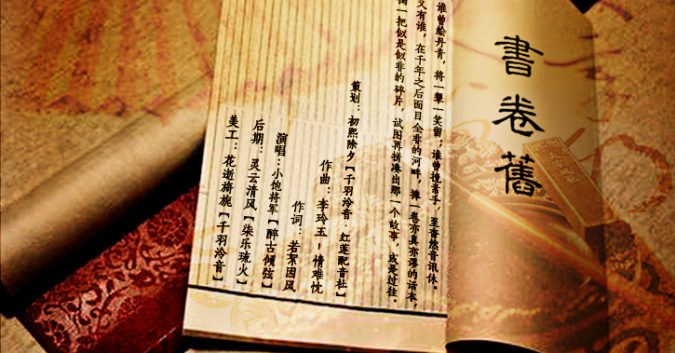 書卷舊
谁曾绘丹青，将一颦一笑留；谁曾揽素手，至杳然音讯休。
又有谁，在千年之后面目全非的河畔，捧一卷亦真亦谬的话本，
一把似是似非的碎片，试图再拼凑出那一个故事，或是过往。
策划：初熙除夕【千羽泠音·红莲配音社】
作曲：李玲玉-情难忱
作词：若絮因风
演唱：小炮将军【醉古倾弦】
后期：灵云清风【柒乐琉火】
美工：花逝旖旎【千羽泠音】